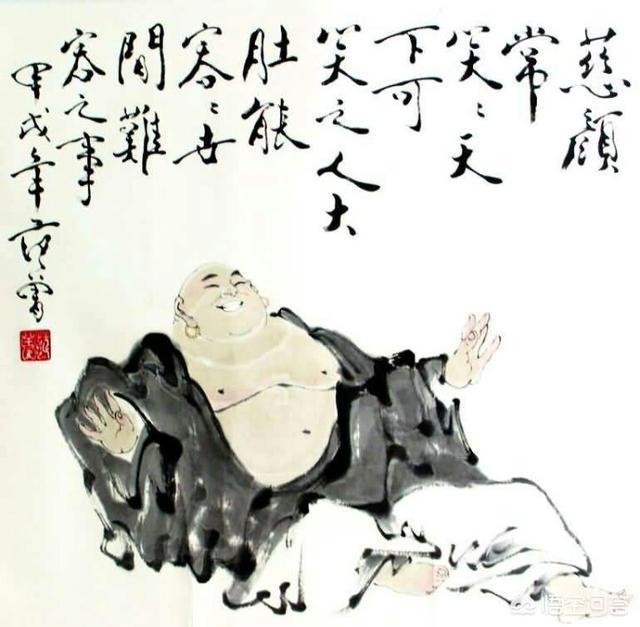 慈顏
常
笑〻天
下可
笑之人大
肚能
容〻世
間難
容之事
甲戌年范曾
悟空问答